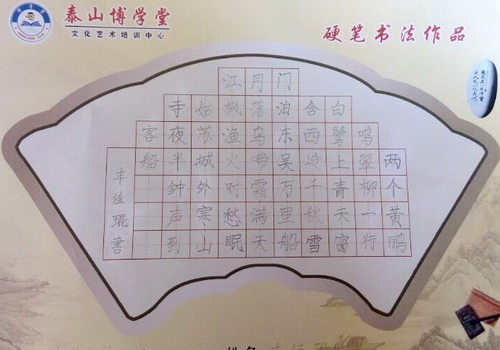 泰山博学堂
文化艺术培训中心
硬笔书法作品
两个黄鹂
鸣翠柳一行
白鹭上青天窗
含西岭千秋雪
门泊东吴万里船
月落乌啼霜满天
江枫渔火对愁眠
姑苏城外寒山
寺夜半钟声到
客船
丰佳琨书